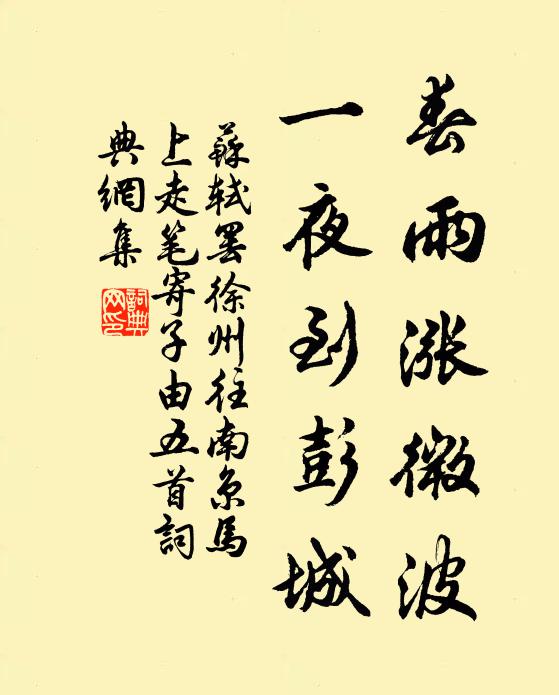 春雨漲微波
一夜到彭城
蘇軾罢徐州往南京馬
上走笔寄子由五首詞
典網集
詞典
网印